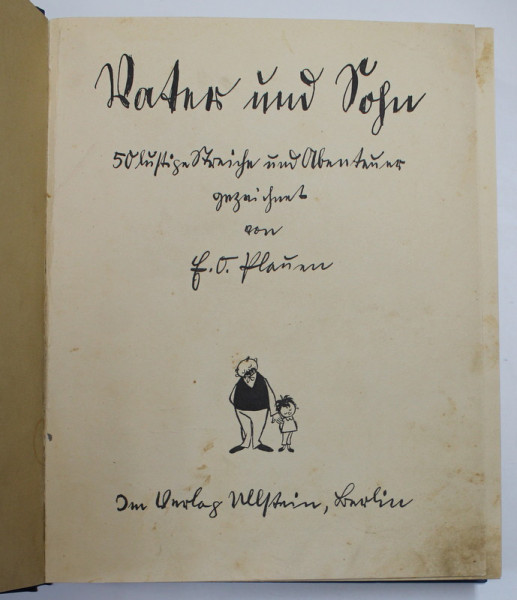 Vater und Sohn
50 lustige Streiche und Abenteuer
gezeichnet
von
E. O. Plauen
Im Verlag Ullstein, Berlin